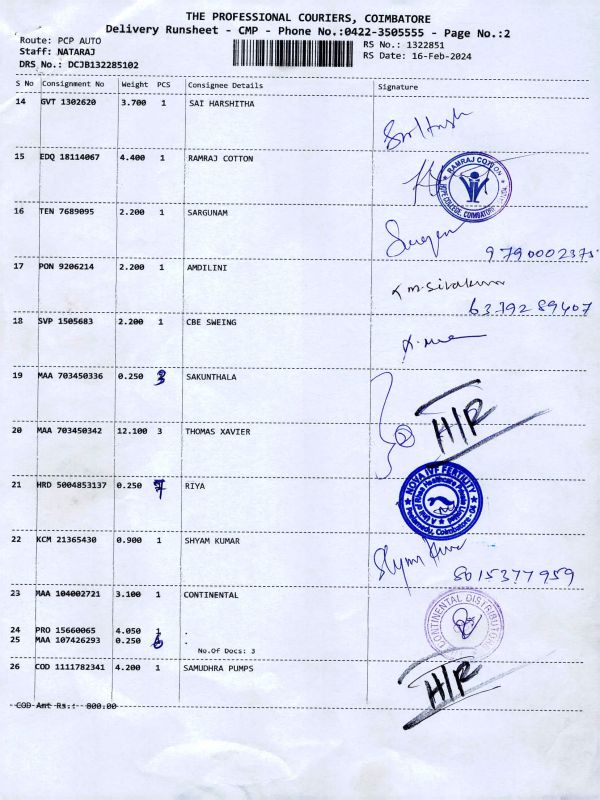 THE PROFESSIONAL COURIERS, COIMBATORE
Delivery Runsheet - CMP - Phone No.:0422-3505555 - Page No.:2
Route: PCP AUTO RS No.: 1322851
Staff: NATARAJ RS Date: 16-Feb-2024
DRS No.: DCJB132285102
S No Consignment No Weight PCS Consignee Details Signature
14 GVT 1302620 3.700 1 SAI HARSHITHA
15 EDQ 18114067 4.400 1 RAMRAJ COTTON
RAMRAJ COTTON
HOPE COLLEGE, COIMBATORE
16 TEN 7689095 2.200 1 SARGUNAM
9790002375
17 PON 9206214 2.200 1 AMDILINI
m.Sivakumar
6379289407
18 SVP 1505683 2.200 1 CBE SWEING
19 MAA 703450336 0.250 SAKUNTHALA
20 MAA 703450342 12.100 3 THOMAS XAVIER
2 H/R
21 HRD 5004853137 0.250 7 RIYA
NOVA IVF FERTILITY
Coimbatore - 04
22 KCM 21365430 0.900 1 SHYAM KUMAR
Shyam Kumar
8015377959
23 MAA 104002721 3.100 1 CONTINENTAL
CONTINENTAL DISTRIBUTORS
24 PRO 15660065 4.050 1 .
25 MAA 107426293 0.250 .
No.Of Docs: 3
26 COD 1111782341 4.200 1 SAMUDHRA PUMPS
H/R
COD Amt Rs.: 800.00